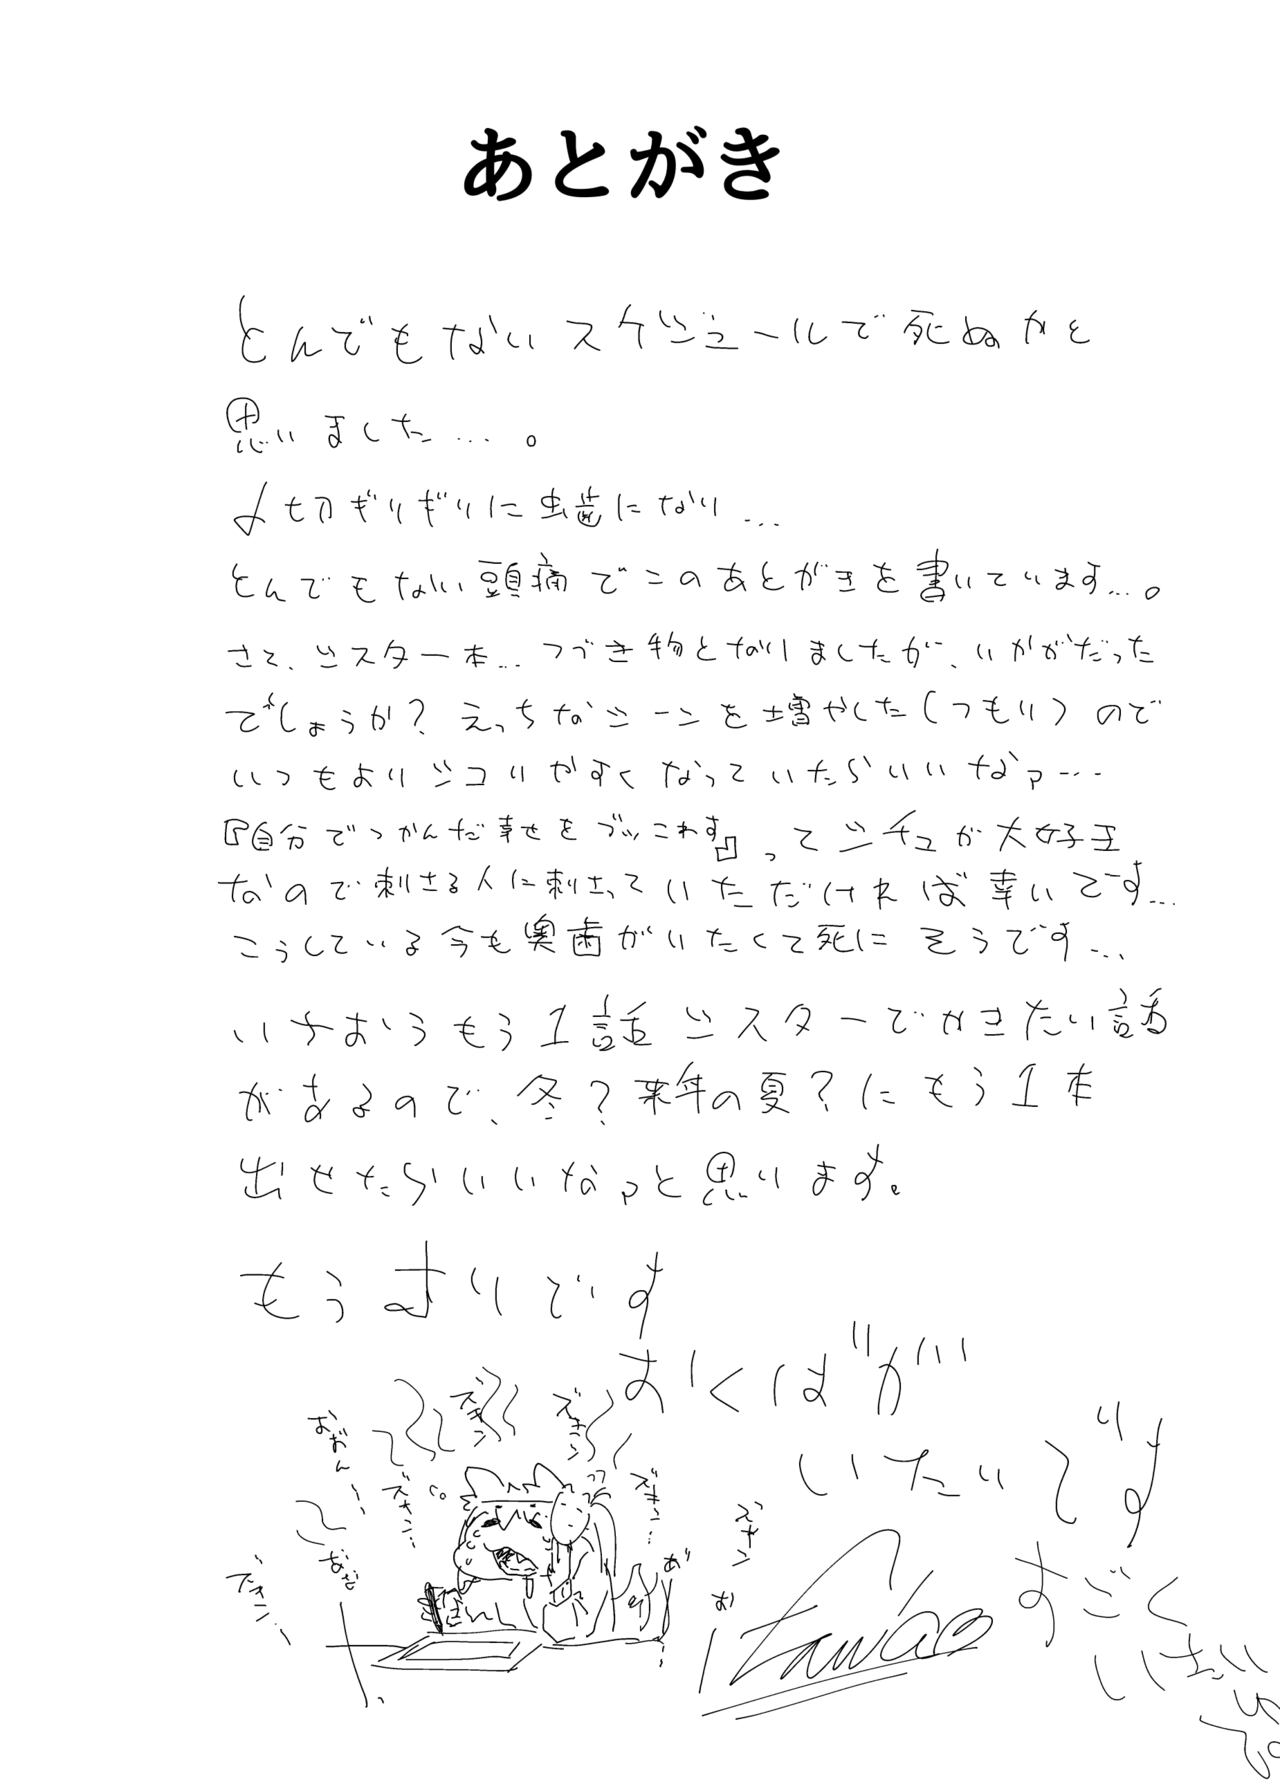 あとがき
とんでもないスケジュールで死ぬかと
思いました…。
〆切ギリギリに虫歯になり…
とんでもない頭痛でこのあとがきを書いています…。
さて、シスター本…つづき物となりましたが、いかがだった
でしょうか？えっちなシーンを増やした(つもり)ので
いつもよりシコりやすくなっていたらいいなァ…
『自分でつかんだ幸せをブッこわす』ってシチュが大好き
なので刺さる人に刺さっていただければ幸いです…
こうしている今も奥歯がいたくて死にそうです…
いちおうもう1話シスターでかきたい話
があるので、冬？来年の夏？にもう1本
出せたらいいなァと思います。
もうムリです
おくばが
いたいです
すごく
いたい
ズキン
ズキン
おおん
ズキン…
ズキン…
ズキン
ズキン…